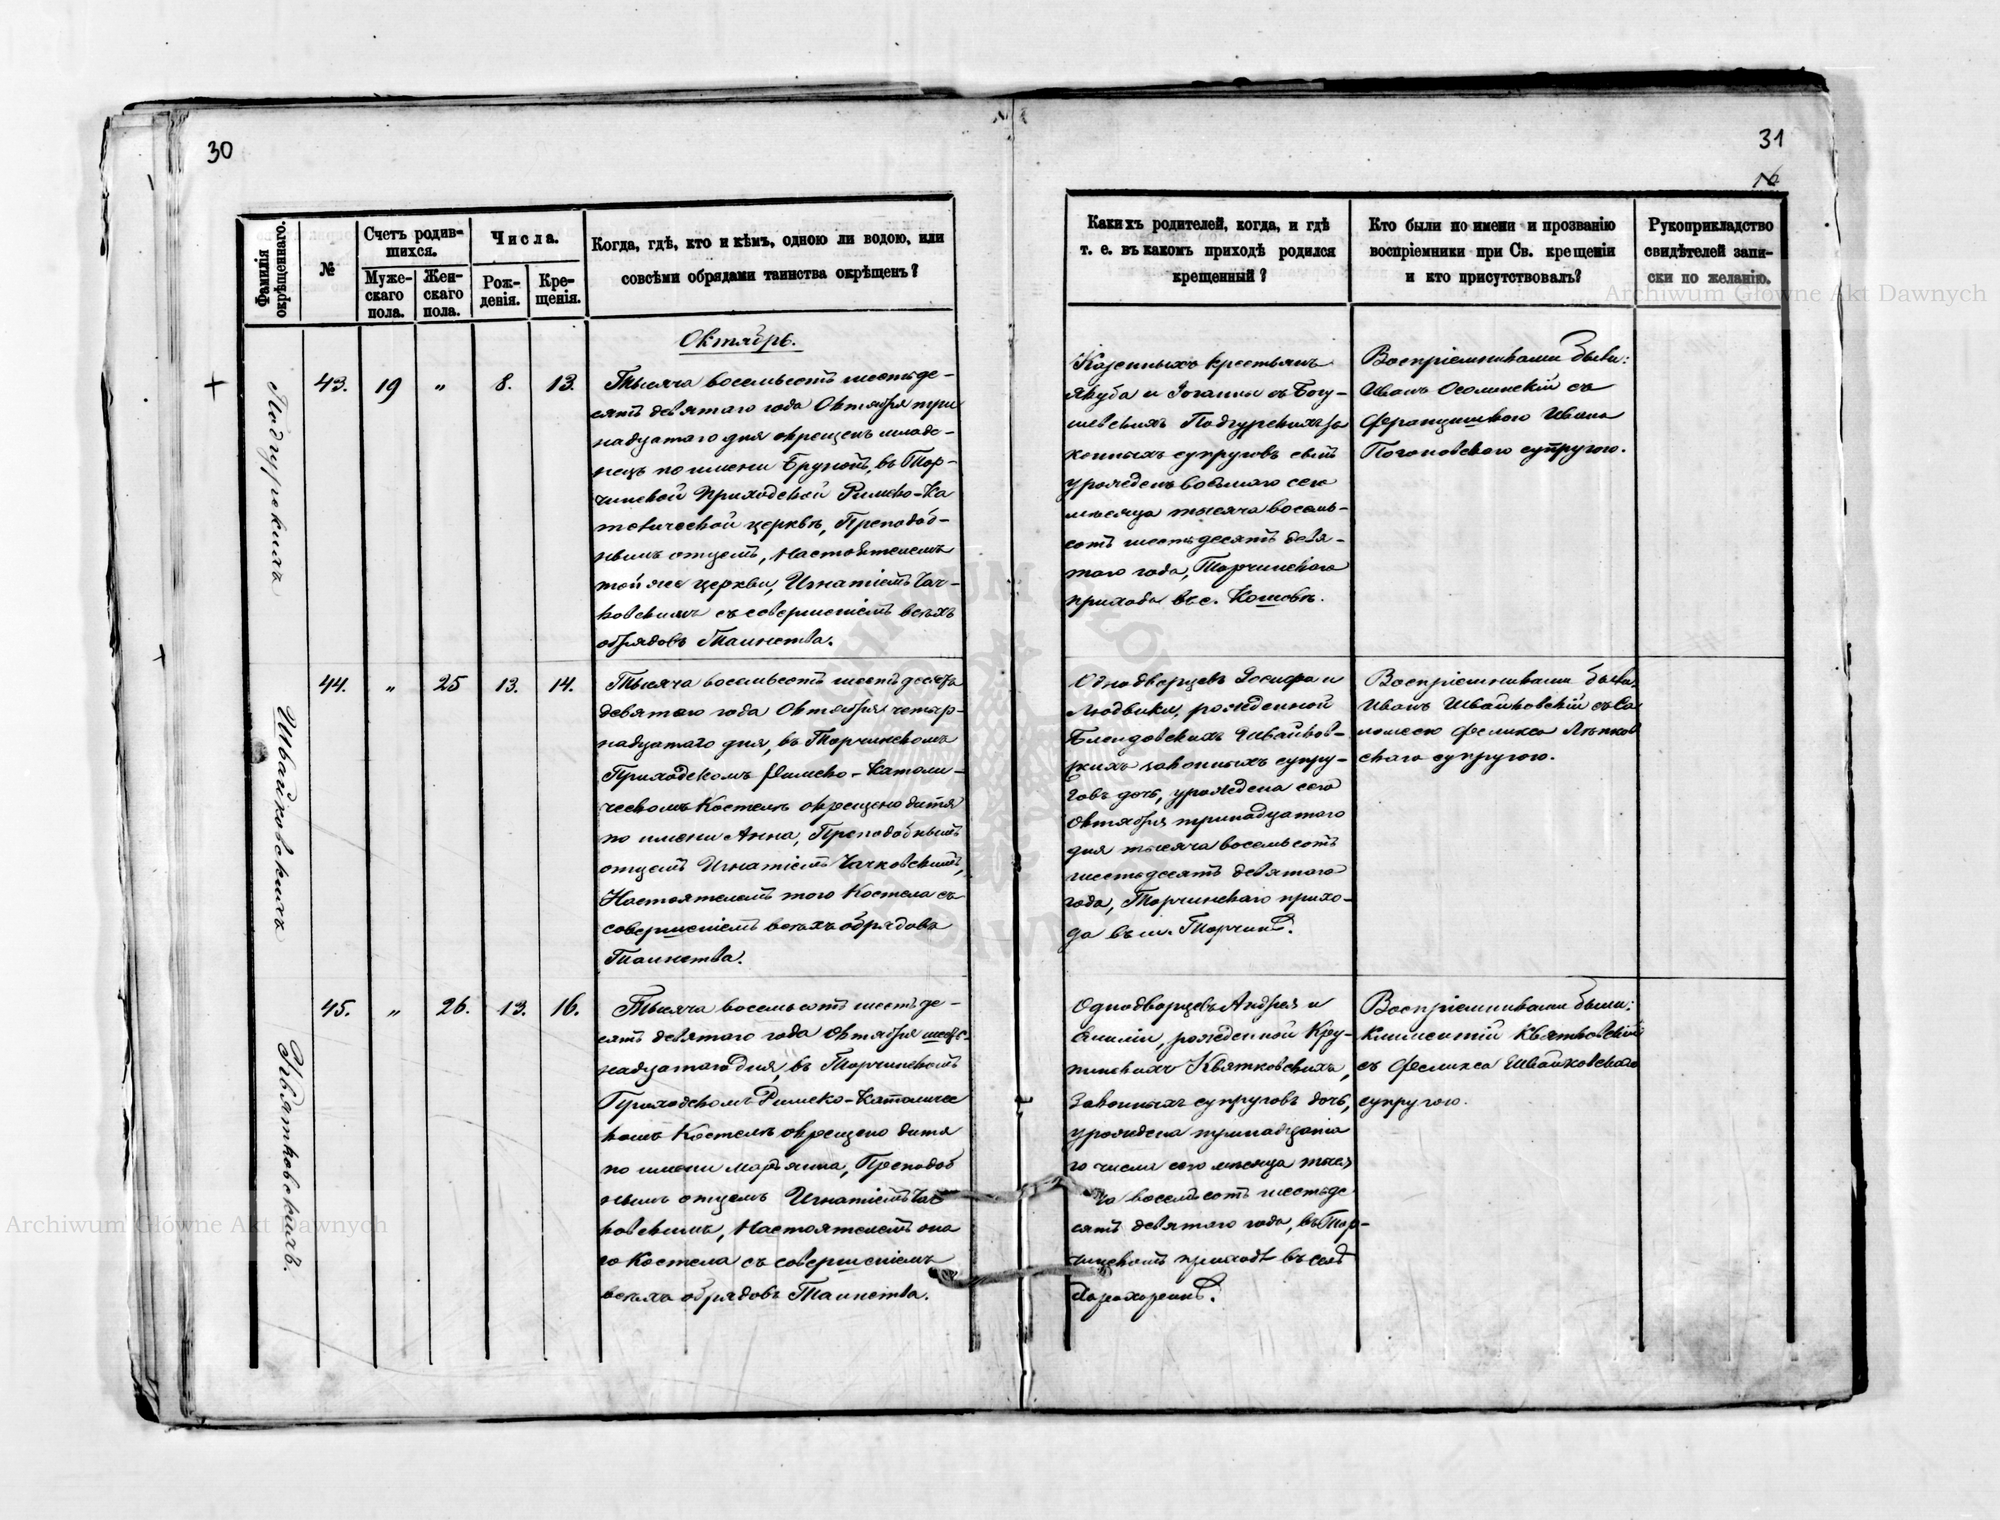 30
31
16
Фамилія окрѣщеннаго.
№
Счетъ родив-
шихся.
Муже-
скаго
пола.
Жен-
скаго
пола.
Числа.
Рож-
денія.
Кре-
щенія.
Когда, гдѣ, кто и кѣмъ, одною ли водою, или
совсѣми обрядами таинства окрѣщенъ?
Какихъ родителей, когда, и гдѣ
т. е. въ какомъ приходѣ родился
крещенный?
Кто были по имени и прозванію
воспріемники при Св. крещеніи
и кто присутствовалъ?
Рукоприкладство
свидѣтелей запи-
ски по желанію.
Октябрь.
Подгурскихъ
43. 19 " 8. 13.
Тысяча восемьсотъ шестьде-
сятъ девятаго года Октября три
надцатаго дня окрещенъ младе-
нецъ по имени Брунонъ, въ Тор-
чинской Приходской Римско-Ка
толической церквѣ, Преподоб-
нымъ отцемъ, Настоятелемъ
той же церкви, Игнатіемъ Чач-
ковскимъ съ совершеніемъ всѣхъ
обрядовъ Таинства.
Казенныхъ крестьянъ
Якуба и Іоганны съ Богу-
шевскихъ Подгурскихъ за
конныхъ супруговъ сынъ
урожденъ восьмаго сего
мѣсяца тысяча восемь-
сотъ шестьдесятъ девя-
таго года, Торчинскаго
прихода въ с. Кошовѣ.
Воспріемниками были:
Иванъ Осолинскій съ
Францишкою Ивана
супругою.
Швайковскихъ
44. " 25 13. 14.
Тысяча восемьсотъ шестьдесятъ
девятаго года Октября четыр-
надцатаго дня, въ Торчинскомъ
Приходскомъ Римско-Католи-
ческомъ Костелѣ окрещено дитя
по имени Анна, Преподобнымъ
отцемъ Игнатіемъ Чачковскимъ,
Настоятелемъ того Костела съ
совершеніемъ всѣхъ обрядовъ
Таинства.
Однодворцевъ Іосифа и
Людвики, рожденной
Швайков-
скихъ законныхъ супру-
говъ дочь, урождена сего
Октября тринадцатаго
дня тысяча восемьсотъ
шестьдесятъ девятаго
года, Торчинскаго прихо-
да въ м. Торчинѣ.
Воспріемниками были:
Иванъ Швайковскій съ Са
ломеею Феликса
скаго супругою.
Квятковскихъ.
45. " 26. 13. 16.
Тысяча восемьсотъ шестьде-
сятъ девятаго года Октября шест-
надцатаго дня, въ Торчинскомъ
Приходскомъ Римско-Католичес
комъ Костелѣ окрещено дитя
по имени Марьянна, Преподоб
нымъ отцемъ Игнатіемъ Чач
ковскимъ, Настоятелемъ она
го Костела съ совершеніемъ
всѣхъ обрядовъ Таинства.
Однодворцевъ Андрея и
Емиліи, рожденной Кру-
пинскихъ Квятковскихъ,
Законныхъ супруговъ дочь,
урождена тринадцата
го числа сего мѣсяца тыся
ча восемьсотъ шестьде
сятъ девятаго года, въ Тор-
чинскомъ приходѣ въ селѣ
Воспріемниками были:
Климентій Квятковскій
съ Феликса Швайковскаго
супругою.
Archiwum Główne Akt Dawnych
Archiwum Główne Akt Dawnych